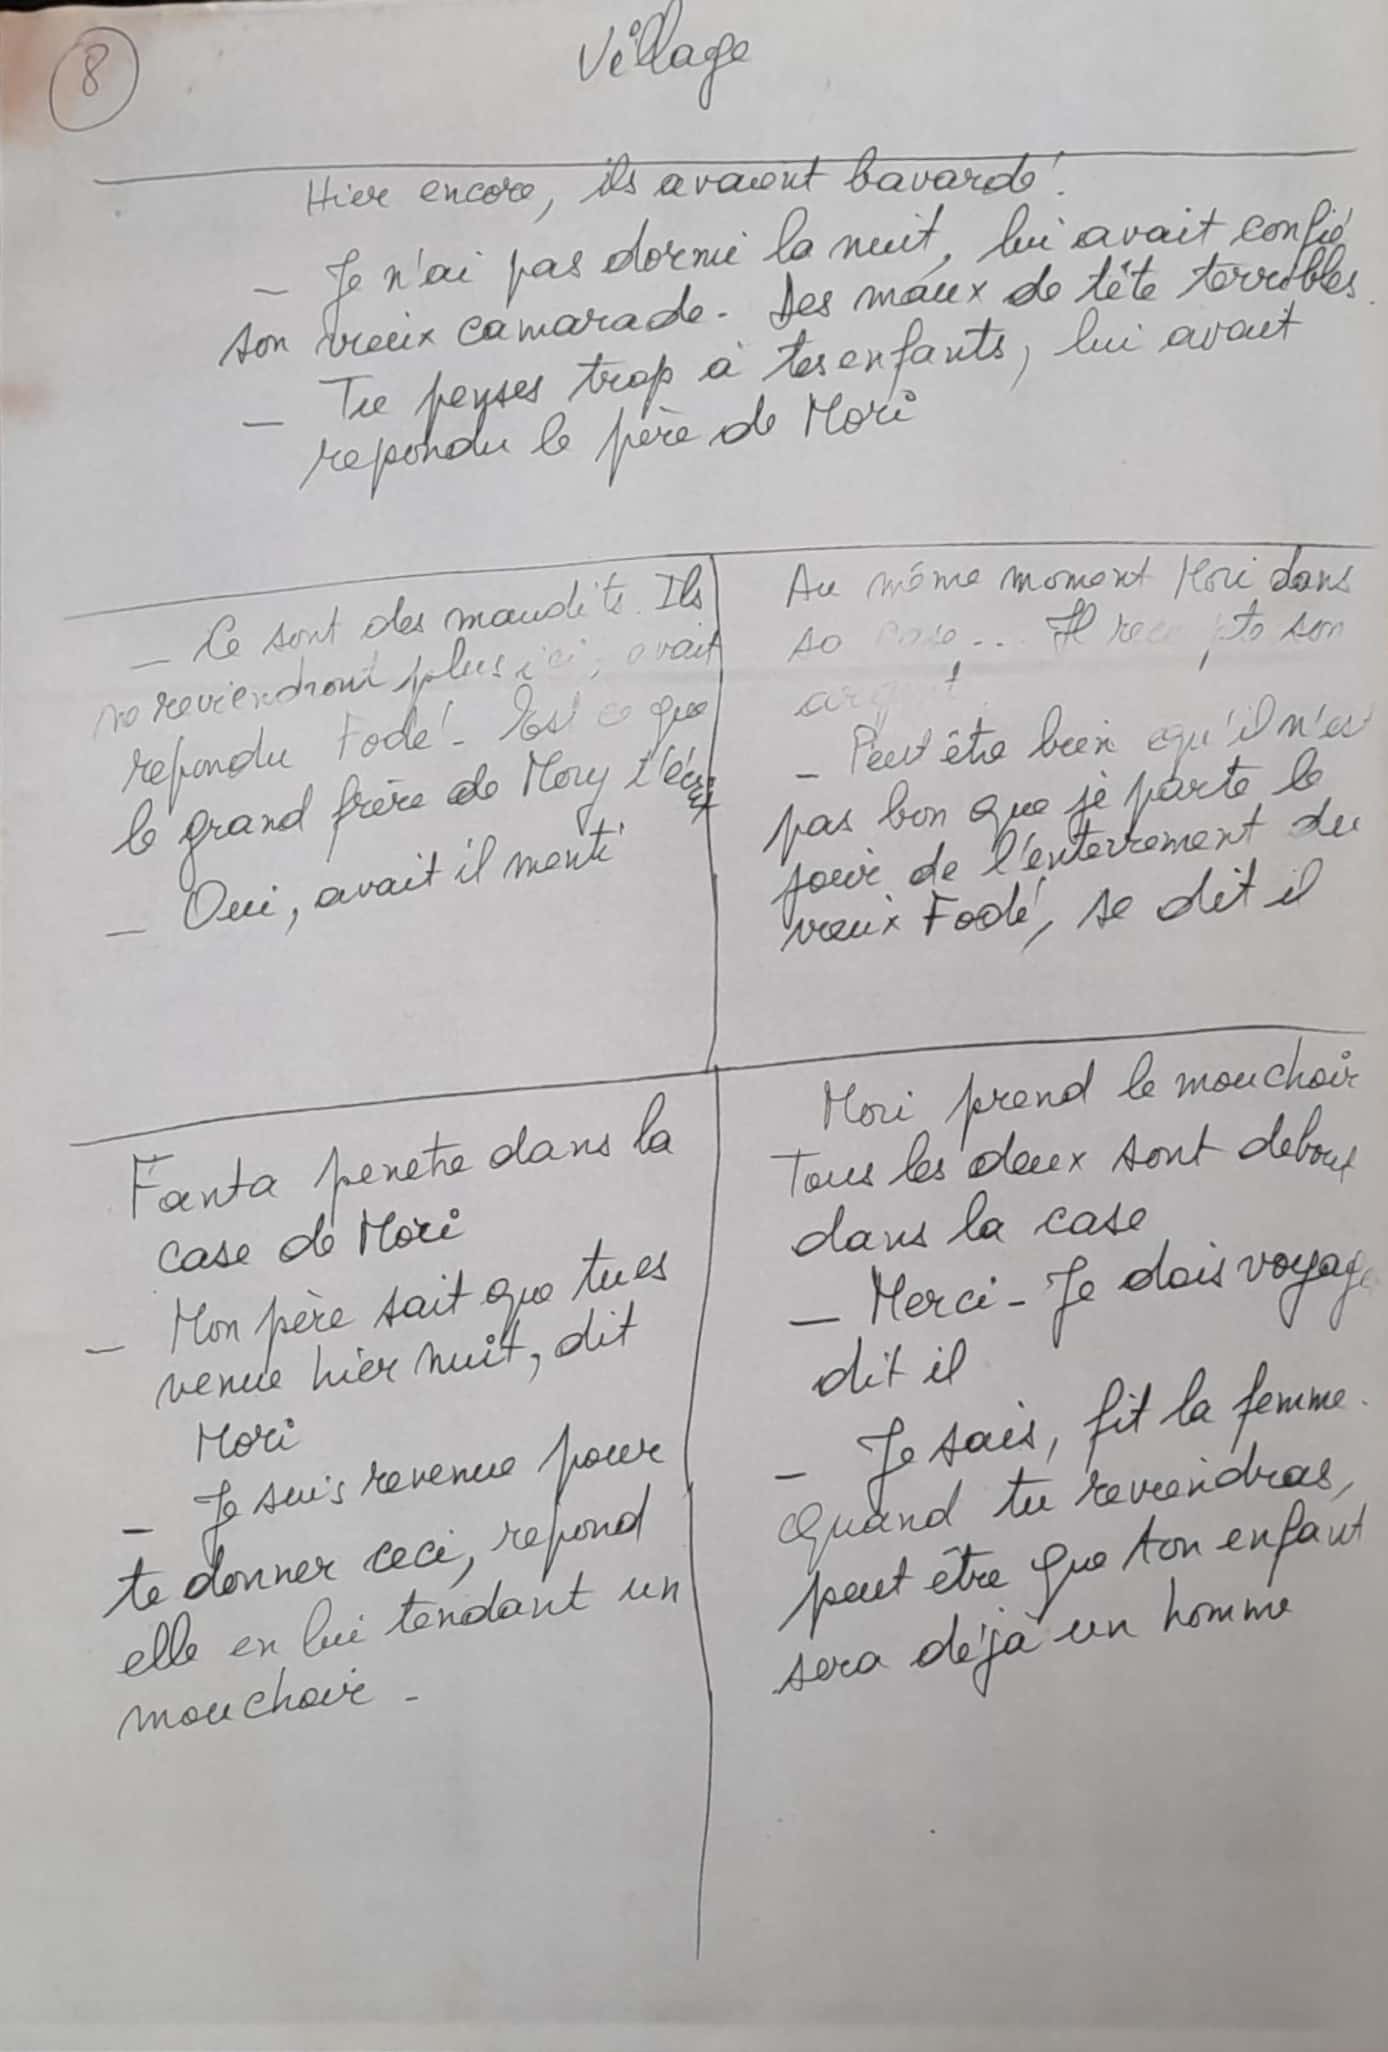 8
Village
Hier encore, ils avaient bavardé.
— Je n'ai pas dormi la nuit, lui avait confié
son vieux camarade. Des maux de tête terribles.
— Tu penses trop à tes enfants, lui avait
repondu le père de Mori
— Ce sont des maudits. Ils
ne reviendront plus ici, avait
repondu Fodé. Est ce que
le grand frère de Mory t'écrit
— Oui, avait il menti
Au même moment Mori dans
sa case... Il recompte son
argent.
— Peut être bien qu'il n'est
pas bon que je parte le
jour de l'enterrement du
vieux Fodé, se dit il
Fanta penetre dans la
case de Mori
— Mon père sait que tu es
venue hier nuit, dit
Mori
— Je suis revenue pour
te donner ceci, repond
elle en lui tendant un
mouchoir -
Mori prend le mouchoir
Tous les deux sont debout
dans la case
— Merci - Je dois voyage
dit il
— Je sais, fit la femme.
Quand tu reviendras,
peut être que ton enfant
sera déjà un homme